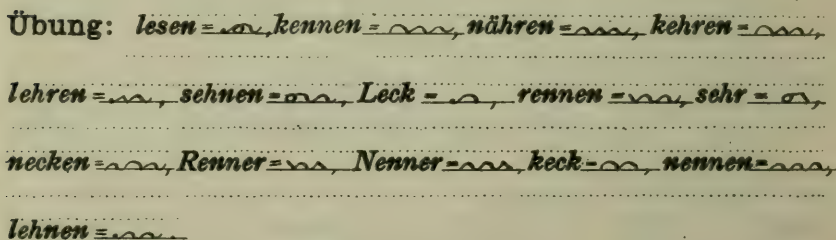 Übung: lesen =, kennen =, nähren =, kehren =,
lehren =, sehnen =, Leck =, rennen =, sehr =,
necken =, Renner =, Nenner =, keck =, nennen =,
lehnen =.